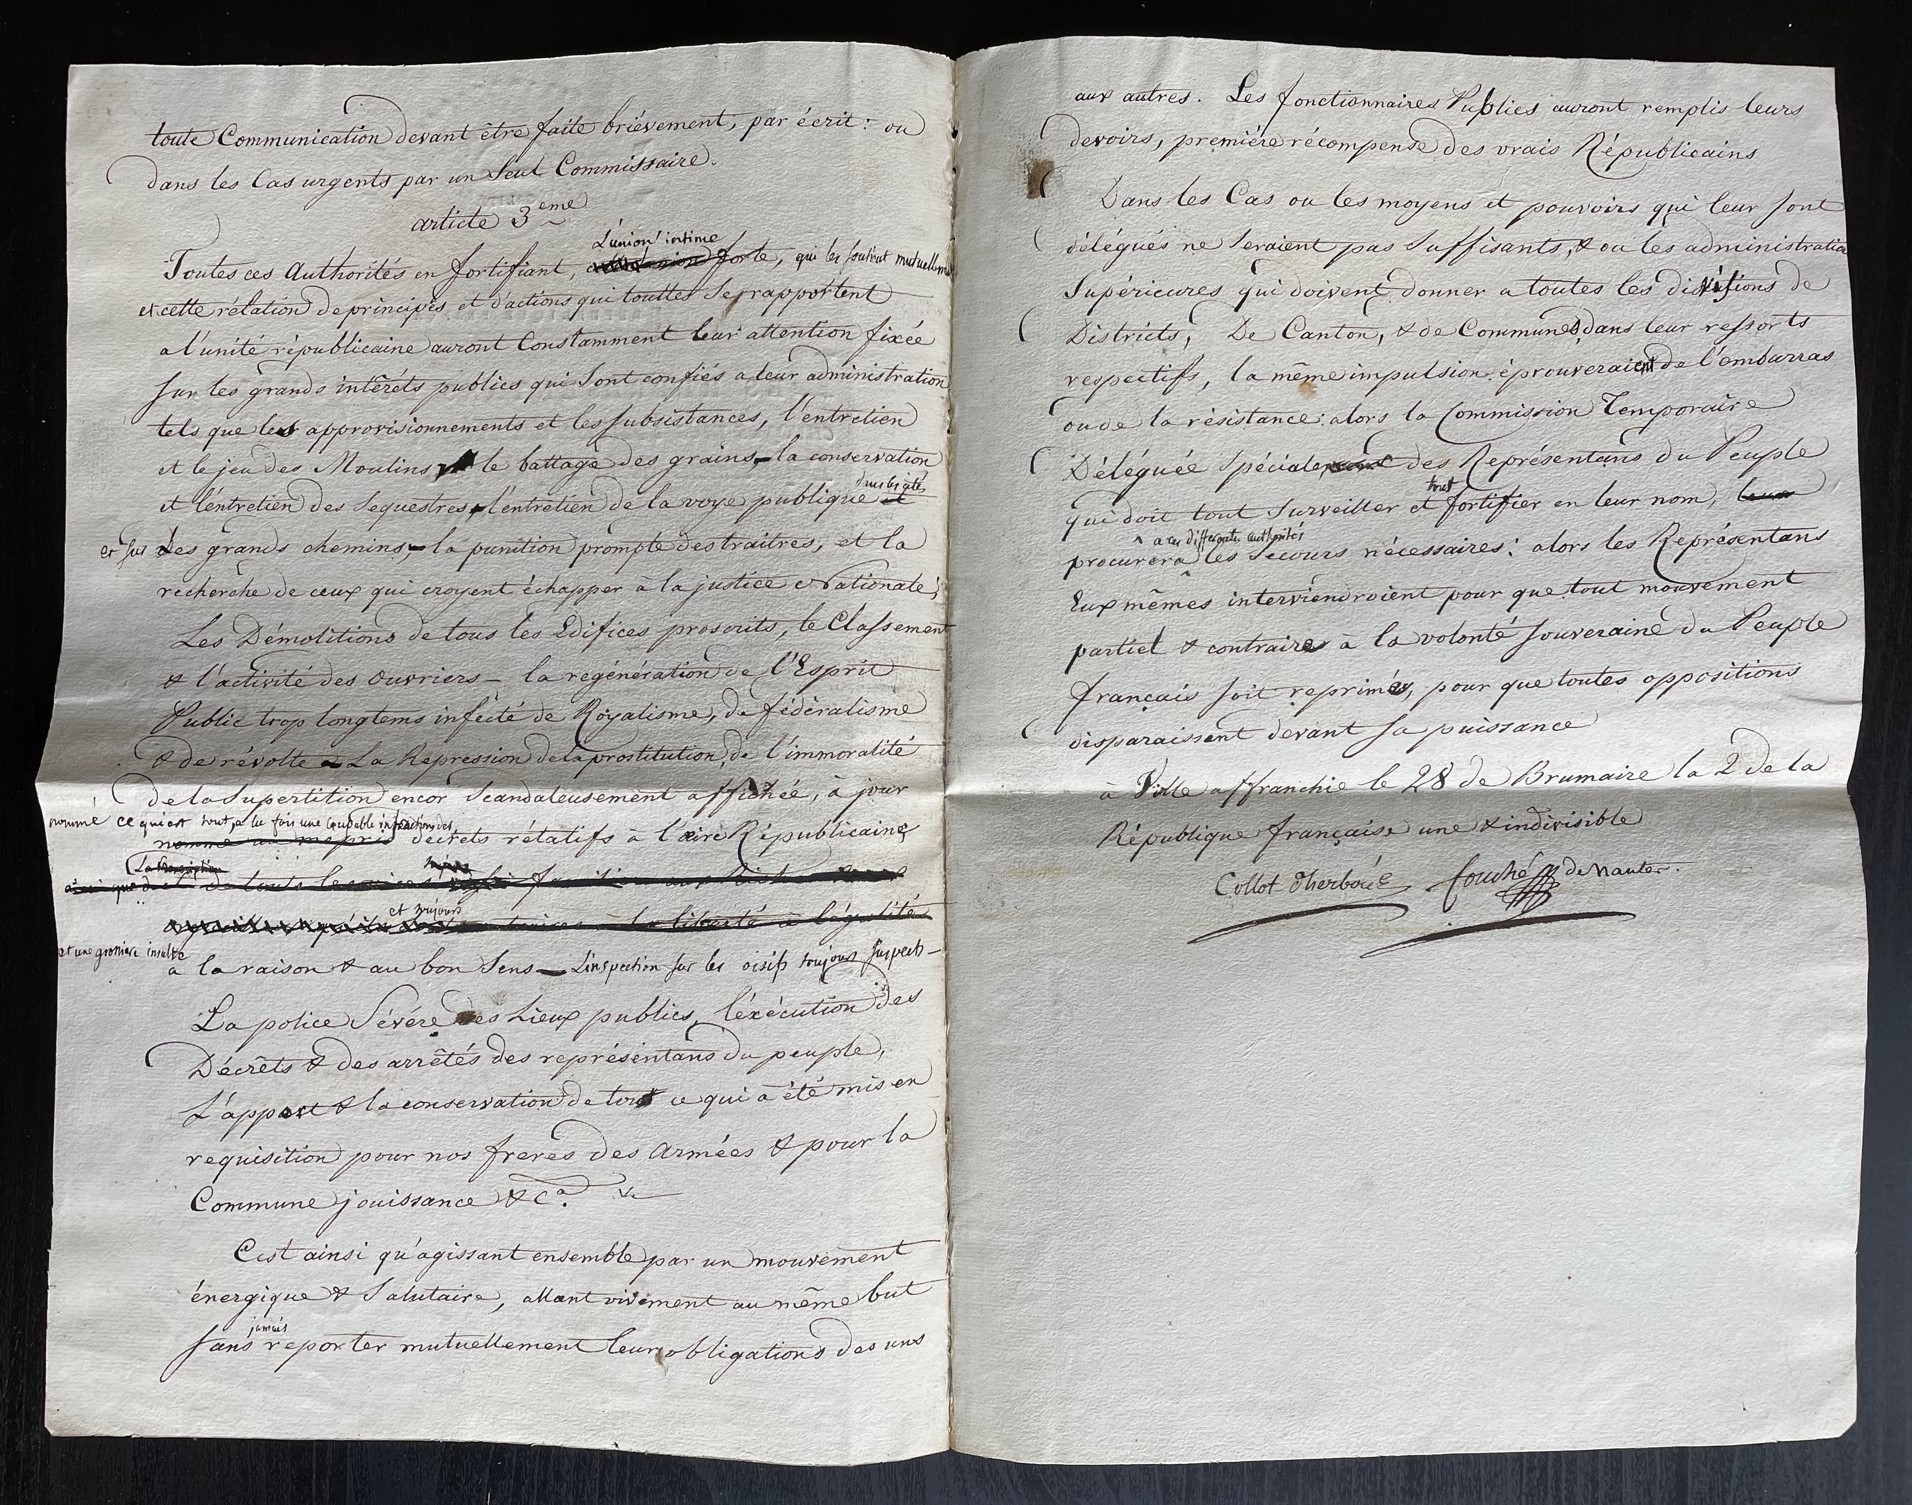 toute Communication devant être faite brièvement, par écrit : ou
dans les Cas urgents par un Seul Commissaire.
article 3eme
L'union intime
Toutes ces Authorités en fortifiant, forte, qui les soutient mutuellement
et cette rélation de principes et d'actions qui touttes se rapportent
a l'unité républicaine auront Constamment leur attention fixée
sur les grands intérêts publics qui sont confiés a leur administration
tels que les approvisionnements et les subsistances, l'entretien
et le jeu des Moulins, le battage des grains, la conservation
et l'entretien des Sequestres, l'entretien de la voye publique et
dans les cités
et sur Les grands chemins, – la punition prompte des traitres, et la
recherche de ceux qui croyent échapper à la justice nationale,
Les Démolitions de tous les Edifices proscrits, le Classement
& l'activité des Ouvriers – la régénération de l'Esprit
Public trop longtems infecté de Royalisme, de fédéralisme
& de révolte – La Repression de la prostitution, de l'immoralité
de la Supertition encor Scandaleusement affichée, à jour
nommé ce qui est tout, a la fois une coupable infraction des
nommé un mepris décrets rélatifs à l'ère Républicaine,
La Proscription
toujours
ainsi que de tous les
et toujours
la liberté à l'égalité
et une grossiere insulte
à la raison & au bon Sens – L'inspection sur les oisifs toujours suspects –
La police Sévére des Lieux publics, l'éxécution des
Décrêts & des arrêtés des représentans du peuple,
L'apport & la conservation de tout ce qui à été mis en
requisition pour nos freres des Armées & pour la
Commune jouissance &ca.
C'est ainsi qu'agissant ensemble par un mouvement
énergique & Salutaire, allant vivement au même but
jamais
sans reporter mutuellement leurs obligations des uns
aux autres. Les fonctionnaires Publics auront remplis leurs
devoirs, première récompense des vrais Républicains
Dans les Cas ou les moyens et pouvoirs qui leur sont
délégués ne Seraient pas Suffisants, & ou les administration
Supérieures qui doivent donner a toutes les divisions de
Districts, De Canton, & de Communes, dans leur ressorts
respectifs, la même impulsion éprouveraient de l'embarras
ou de la résistance : alors la Commission Temporaire
Déléguée Spéciale des Représentans du Peuple
tout
qui doit tout Surveiller et fortifier en leur nom, leur
a ces differentes authorités
procurera les Secours nécessaires : alors les Représentans
Eux mêmes interviendroient pour que tout mouvement
partiel & contraire à la volonté Souveraine du Peuple
français soit reprimés, pour que toutes oppositions
disparaissent devant sa puissance
à Ville affranchie le 28 de Brumaire la 2 de la
République française une & indivisible
Collot d'herbois Fouché de Nantes.